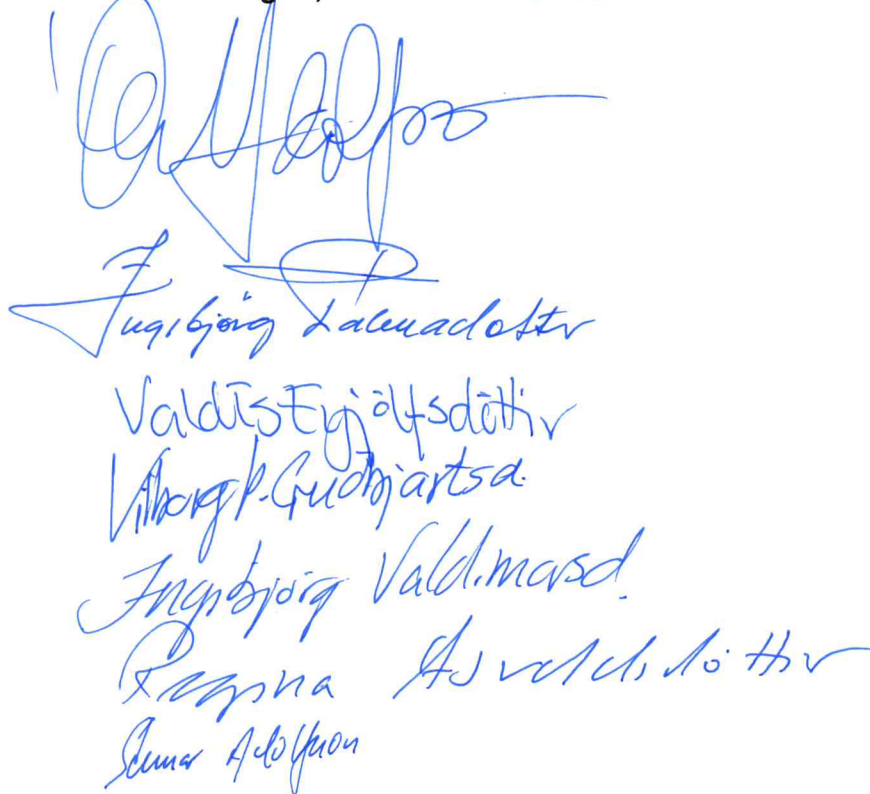 Ingibjörg Pálmadóttir
Valdís Eyjólfsdóttir
Vilborg Þ. Guðbjartsd.
Ingibjörg Valdimarsd.
Regína Ásvaldsdóttir
Adolfsson